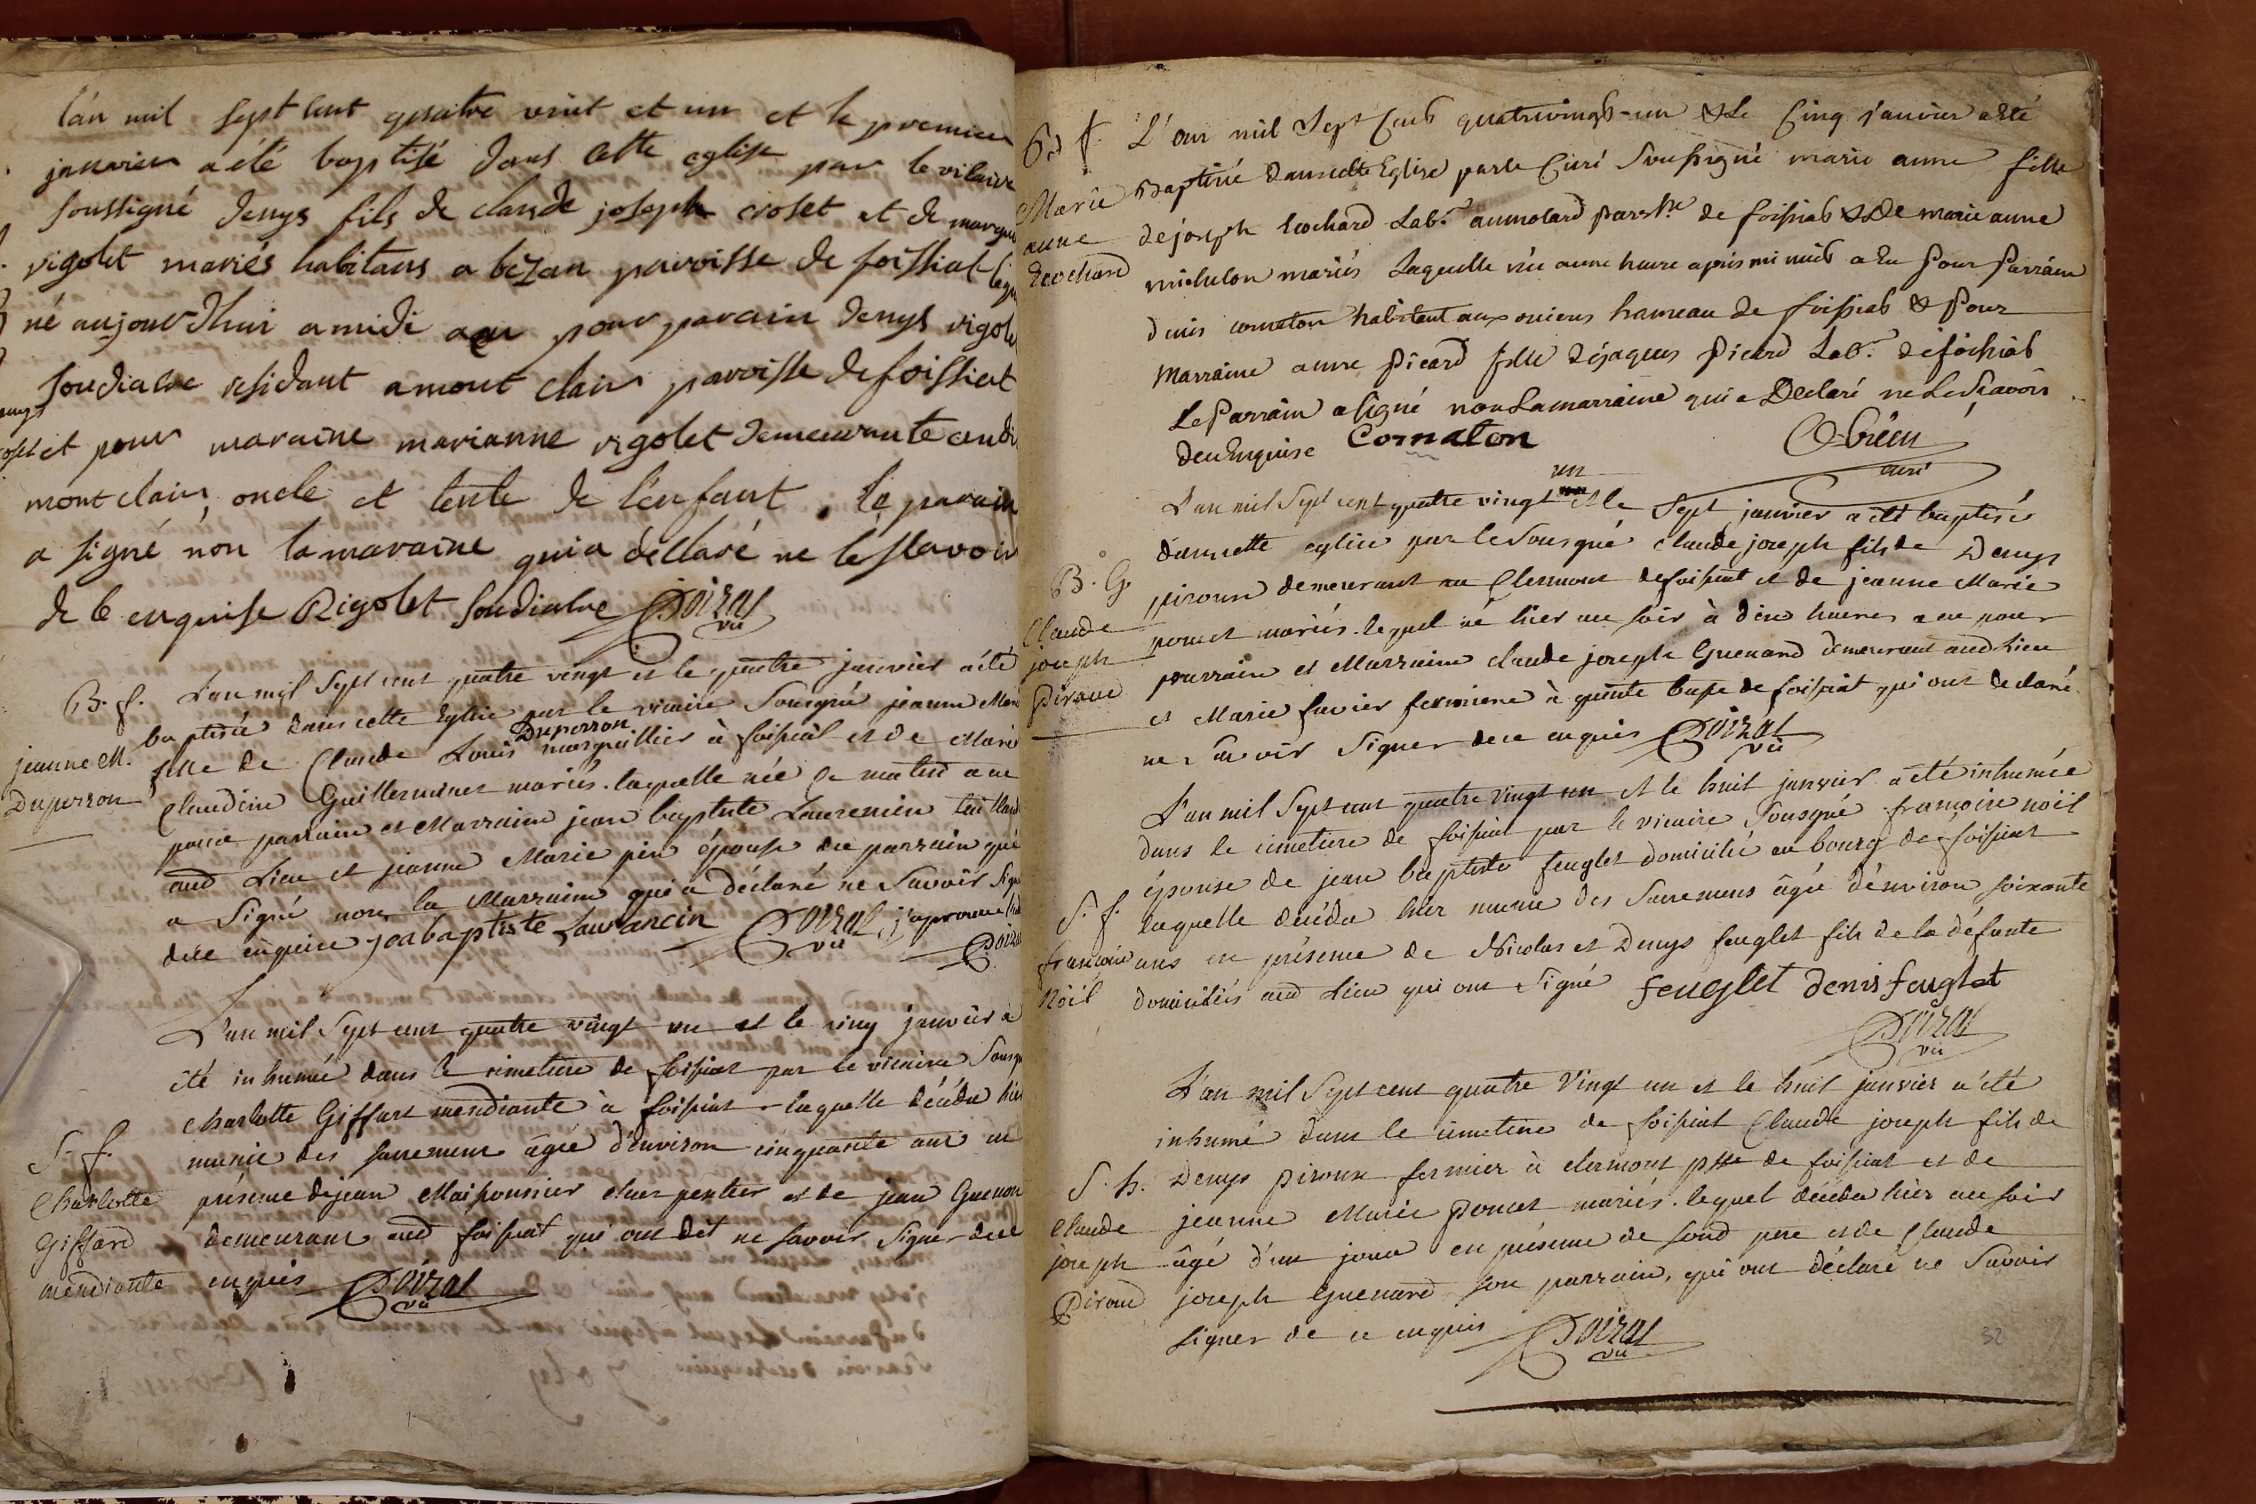 l'an mil sept cent quatre vint et un et le premier
janvier a été baptisé dans cette eglise par le vicaire
soussigné denys fils de claude joseph croset et de margu
rigolet mariés habitans a bezan paroisse de foissiat lequ
né aujourdhui a midi a eu pour parain denys rigolet
soudiacre residant a mont clair paroisse de foissiat
et pour maraine marianne rigolet demeurante audi
mont clair, oncle et tente de l'enfant, le parain
a signé non la maraine qui a déllaré ne le sçavoir
de ce enquise Rigolet soudiacre Poizat
vic
B. f.
jeanne M.
Duperron
L'an mil Sept cent quatre vingt et le quatre janvier a été
baptisée dans cette Eglise par le vicaire Sousigné jeanne Mari
Duperron
fille de Claude Louis marguillier à foissiat et de Marie
Claudine Guillerminet mariés. laquelle née ce matin a eu
pour parrain et Marraine jean baptiste Laurencin taillard
aud Lieu et jeanne Marie pin épouse du parrain qui
a Signé non la Marraine qui a déclaré ne Savoir sign
de ce enquise joabaptiste Laurancin Poizat j'aprouve
vic Poizat
S. f.
Charlotte
Giffard
mendiante
L'an mil Sept cent quatre vingt un et le cinq janvier a
été inhumée dans le cimetiere de foissiat par le vicaire Sousig
charlotte Giffart mendiante à foissiat laquelle décéda hier
munie des sacremens âgée d'environ cinquante ans en
présence de jean Maissonnier charpentier et de jean Guenon
demeurans aud foissiat qui ont dit ne savoir Signer de ce
enquis Poizat
vic
B. f.
Marie
anne
Cochard
L'an mil Sept Cent quatrevingt-un & Le Cinq janvier a été
Baptisée dans cette Eglise par le Curé Soussigné marie anne fille
de joseph Cochard Lab.r au molard par.sse de foissiat & de marie anne
michelon mariés Laquelle née a une heure après mi nuit a Eu Pour Parrain
denis cornaton habitant aux oncieux hameau de foissiat & Pour
Marraine anne Picard fille de jaques Picard Lab.r de foissiat
Le Parrain a Signé non La marraine qui a Déclaré ne Le Sçavoir
de ce Enquise Cornaton
curé
B. G.
Claude
joseph
Piroud
un
L'an mil Sept cent quatre vingt et le Sept janvier a été baptisé
dans cette eglise par le Sousigné claude joseph fils de Denys
piroux demeurant au Clermont de foissiat et de jeanne Marie
poncet mariés. lequel né hier au soir à dix heures a eu pour
parrain et Marraine claude joseph Guenard demeurant aud Lieu
et Marie favier fermiere à quinte basse de foissiat qui ont declaré
ne Savoir Signer de ce enquis Poizat
vic
S. f.
françoise
Nöel
L'an mil Sept cent quatre vingt un et le huit janvier a été inhumée
dans le cimetiere de foissiat par le vicaire Sousigné françoise nöel
épouse de jean baptiste feuglet domicilié au bourg de foissiat
laquelle décéda hier munie des Sacremens âgée d'environ soixante
ans en présence de Nicolas et Denys feuglet fils de la défunte
domiciliés aud Lieu qui ont Signé feuglet denis feuglet
Poizat
vic
S. h.
Claude
joseph
Piroud
L'an mil Sept cent quatre Vingt un et le huit janvier a été
inhumé dans le cimetiere de foissiat Claude joseph fils de
Denys piroux fermier à clermont psse de foissiat et de
jeanne Marie Poncet mariés. lequel décéda hier au soir
âgé d'un jour en présence de sond pere et de Claude
joseph Guenard son parrain, qui ont déclaré ne Savoir
signer de ce enquis Poizat
vic
32